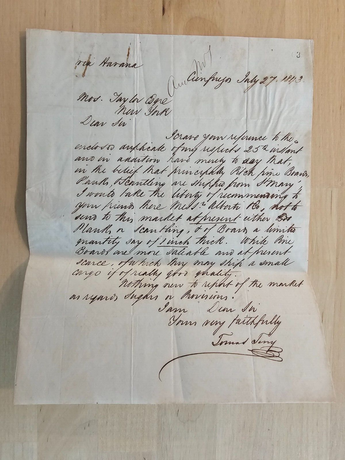 via Havana
3
Cienfuegos July 27. 1843
Mos. Taylor Esqre
New York
Dear Sir
I crave your reference to the
enclosed duplicate of my respects 25th instant
and in addition have merely to say that,
in the belief that principally Pitch pine Boards
Planks & Scantling are shipped from St Mary
I would take the liberty of recommending to
your friends there Messrs Alberti & Co, not to
send to this market at present either
Planks or Scantling, & of Boards a limited
quantity say of 1 inch thick. White Pine
Boards are more saleable and at present
scarce, of which they may ship a small
cargo if of really good quality.
Nothing new to report of the market
as regards Sugars or Provisions.
I am Dear Sir
Yours very faithfully
Tomas Terry